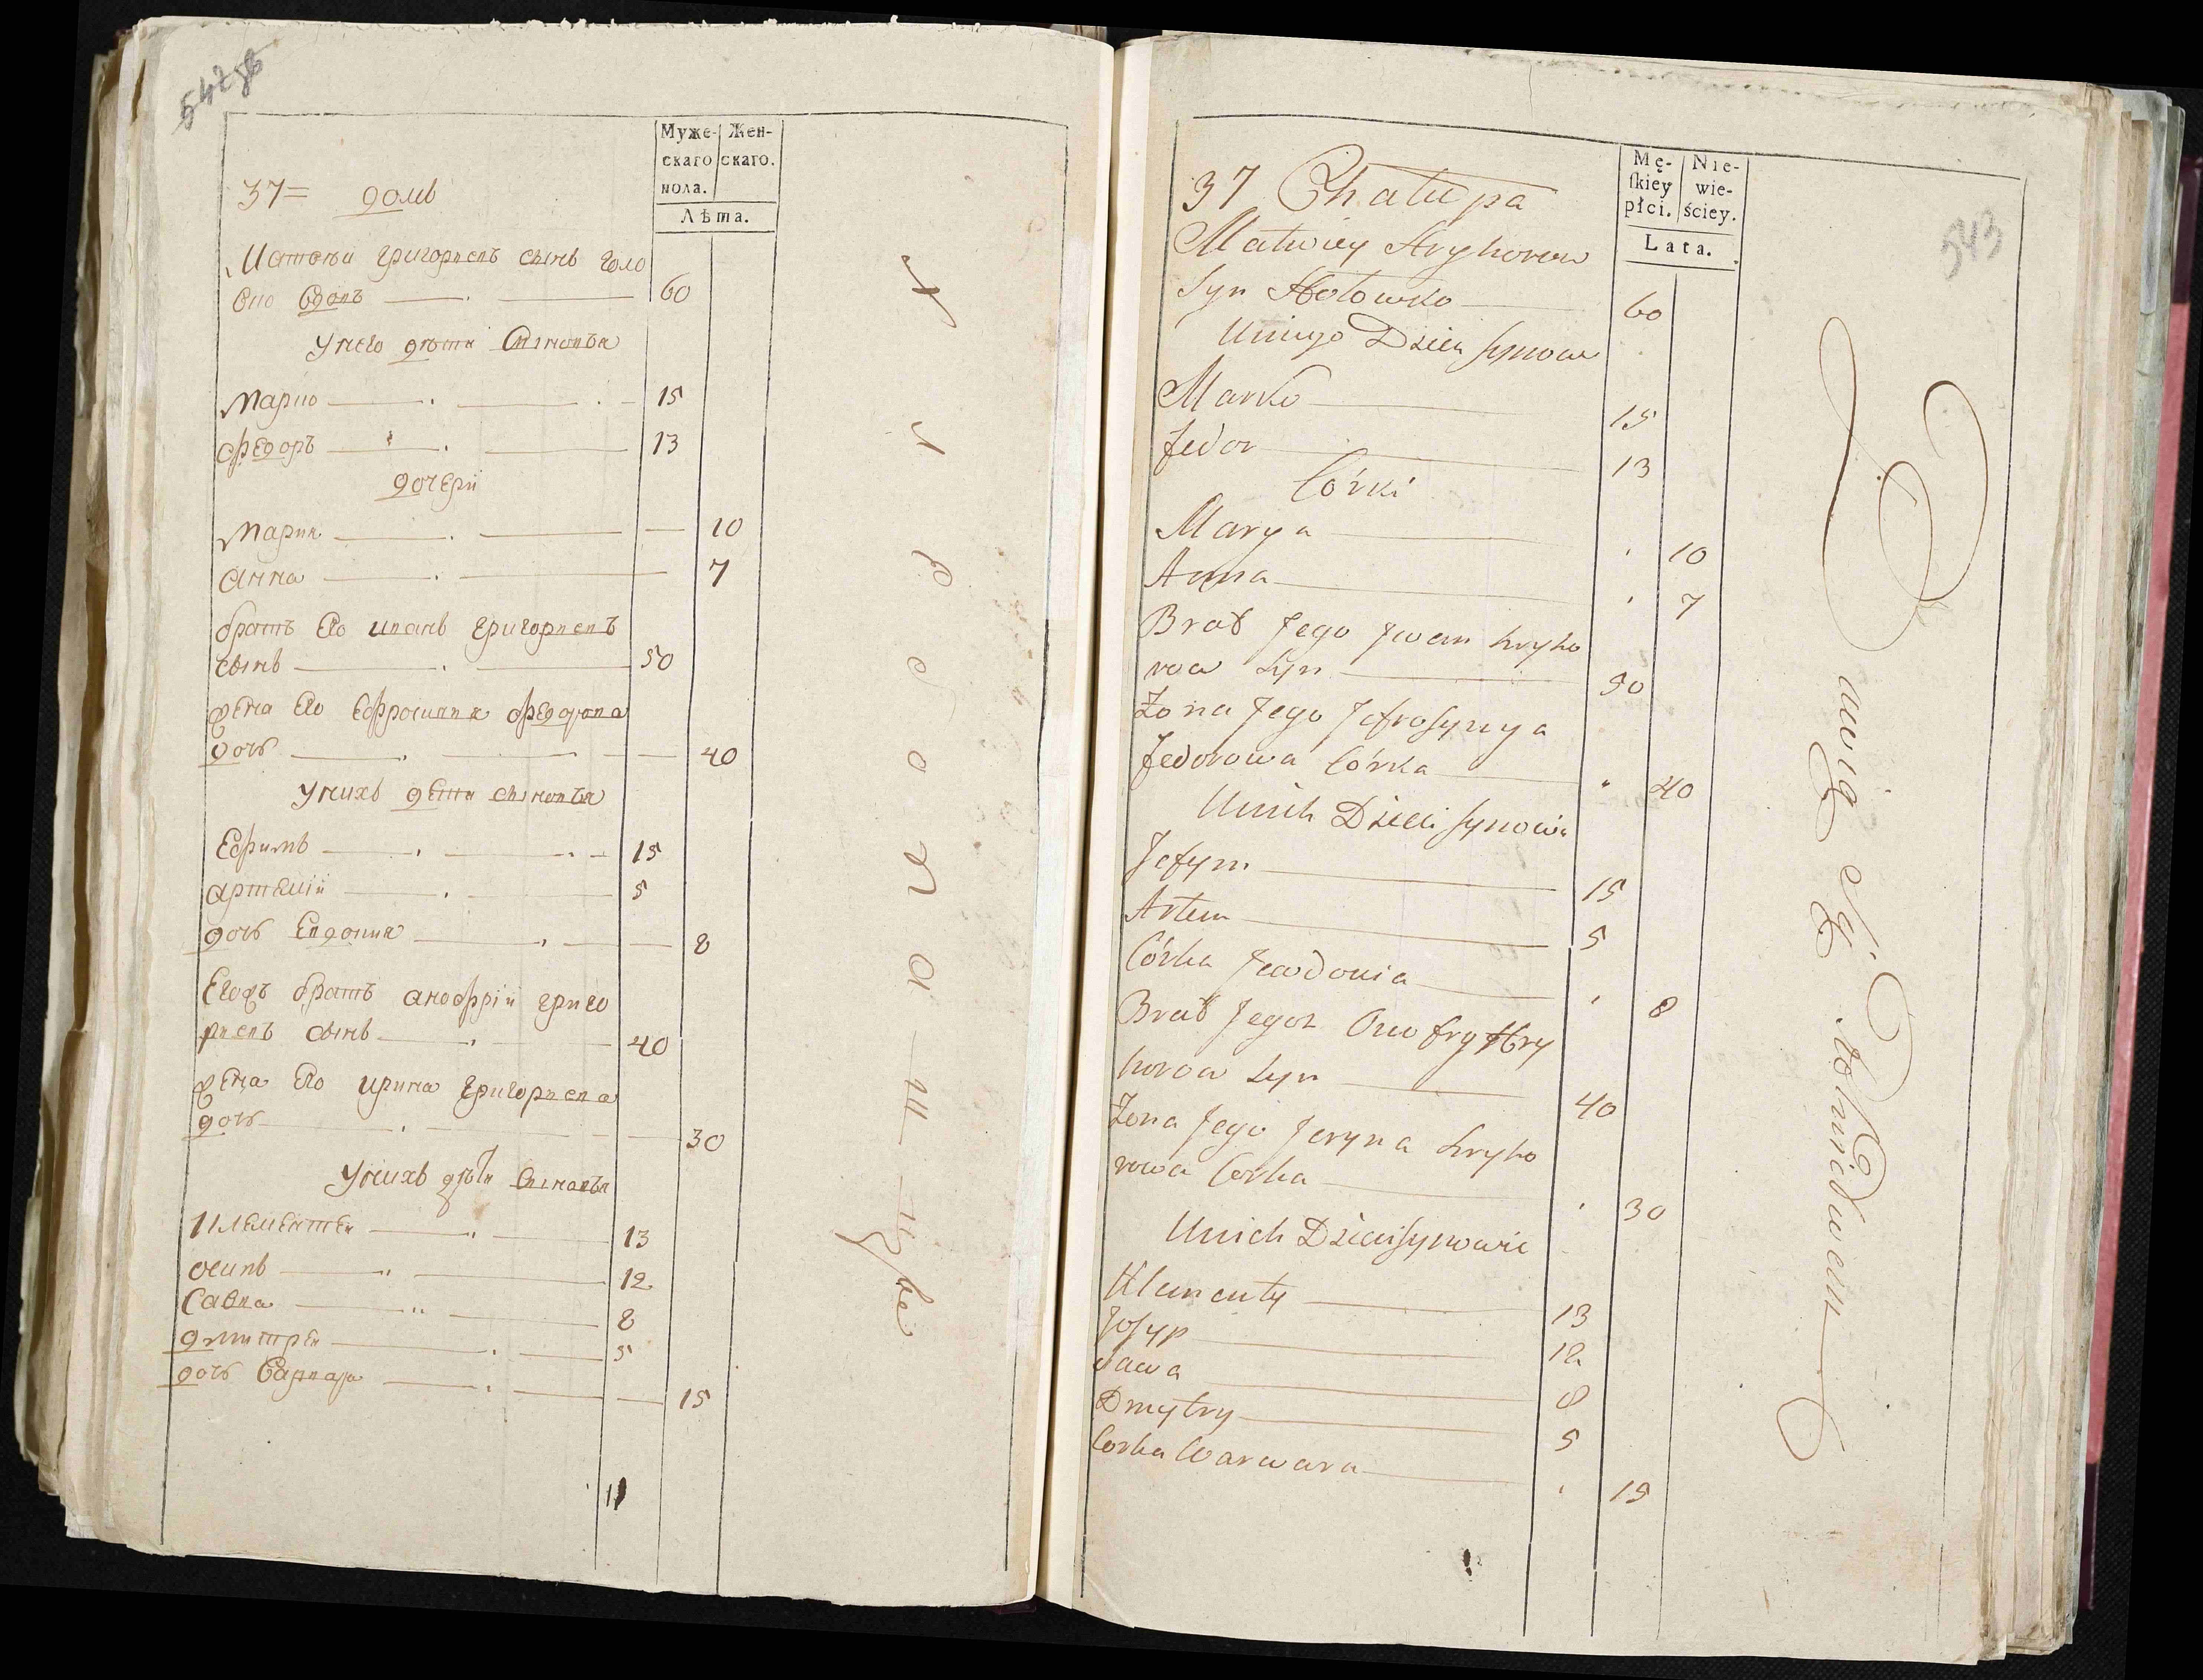 542 об
Муже- Жен-
скаго скаго.
пола.
Лѣта.
37= домъ
Матвѣй григорьевъ сынъ голо
вко вдовъ 60
У него дѣти сыновья
Марко 15
федоръ 13
дочери
Мария 10
анна 7
братъ его иванъ григорьевъ
сынъ 50
жена его Ефросиния федорова
дочь 40
У нихъ дети сыновья
Ефимъ 15
артемiй 5
дочь Евдокия 8
Егожъ братъ анофрiй григо
рьевъ сынъ 40
жена его ирина григорьева
дочь 30
У нихъ дѣти сыновья
Климентей 13
осипъ 12
Савка 8
дмитрей 5
дочь варвара 15
11
543
Mę- Nie-
skiey wie-
płci. ściey.
Lata.
37 Chałupa
Matwiey Hryhorow
Syn Hołowko 60
U niego Dzieci synowie
Marko 15
Fedor 13
Córki
Marya 10
Anna 7
Brat Jego Jwan Hryho
row Syn 50
Żona Jego Jefrosynya
Fedorowa Córka 40
U nich Dzieci synowie
Jefym 15
Artem 5
Córka Jewdonia 8
Brat Jegoż Onofry Hry
horow Syn 40
Żona Jego Jeryna Hryho
rowa Corka 30
U nich Dzieci synowie
Klementy 13
Josyp 12
Sawa 8
Dmytry 5
Corka Warwara 15